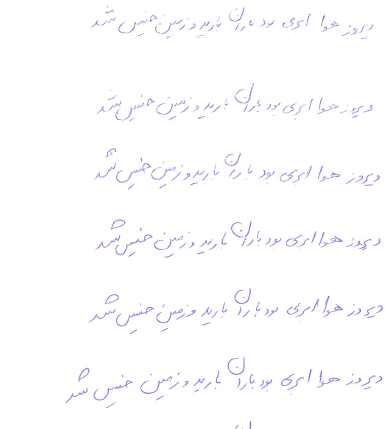 دیروز هوا ابری بود باران بارید و زمین خیس شد
دیروز هوا ابری بود باران بارید و زمین خیس شد
دیروز هوا ابری بود باران بارید و زمین خیس شد
دیروز هوا ابری بود باران بارید و زمین خیس شد
دیروز هوا ابری بود باران بارید و زمین خیس شد
دیروز هوا ابری بود باران بارید و زمین خیس شد